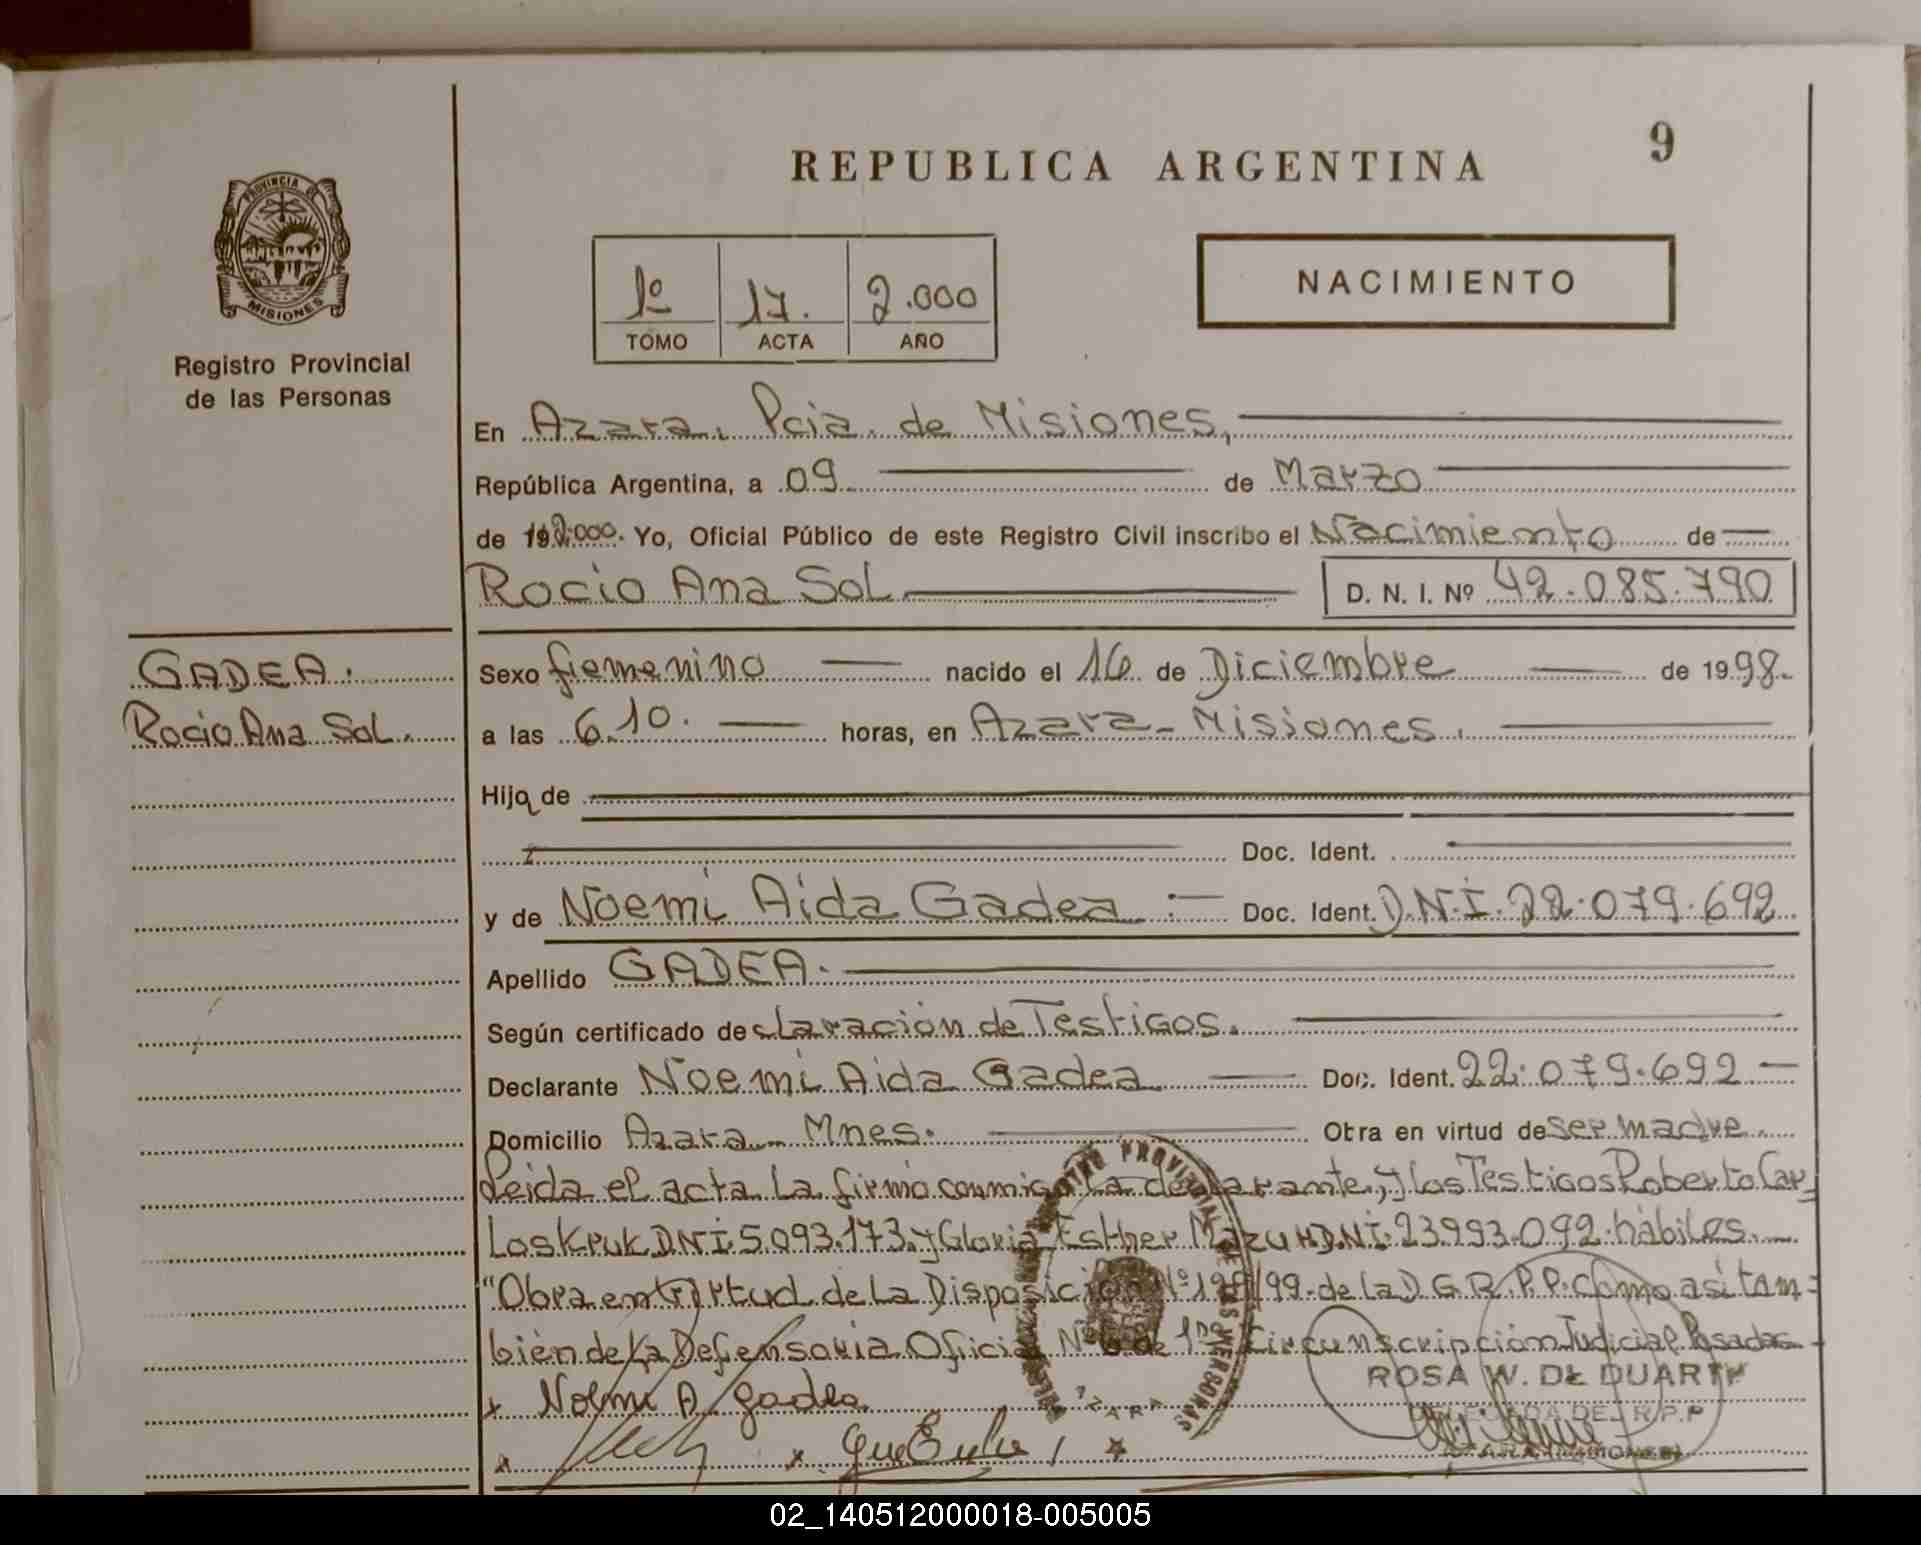 9
REPUBLICA ARGENTINA
PROVINCIA DE
MISIONES
Registro Provincial
de las Personas
1º 17. 2.000
TOMO ACTA AÑO
NACIMIENTO
En Azara, Pcia. de Misiones,
República Argentina, a 09 de Marzo
de 192.000. Yo, Oficial Público de este Registro Civil inscribo el Nacimiento de
Rocio Ana Sol D. N. I. Nº 42.085.790
GADEA.
Rocio Ana Sol.
Sexo femenino nacido el 16 de Diciembre de 1998.
a las 6.10. horas, en Azara - Misiones.
Hija de
Doc. Ident.
y de Noemi Aida Gadea Doc. Ident. D.N.I. 22.079.692
Apellido GADEA.
Según certificado declaración de Testigos.
Declarante Noemi Aida Gadea Doc. Ident. 22.079.692
Domicilio Azara Mnes. Obra en virtud de ser madre.
Leida el acta la firmó conmigo la declarante, y los Testigos Roberto Car-
los Kruk DNI 5.093.173 y Gloria Esther DNI 23.993.092 hábiles.
"Obra en Virtud de la Disposición Nº /99 de la D.G.R.P.P. como asi tam=
bién de la Defensoria Oficial de 1ra Circunscripción Judicial Posadas
x Noemi A Gadea
ROSA W. DE DUARTE
DELEGADA DEL R.P.P
AZARA (MISIONES)
REGISTRO PROVINCIAL DE LAS PERSONAS
AZARA
02_140512000018-005005